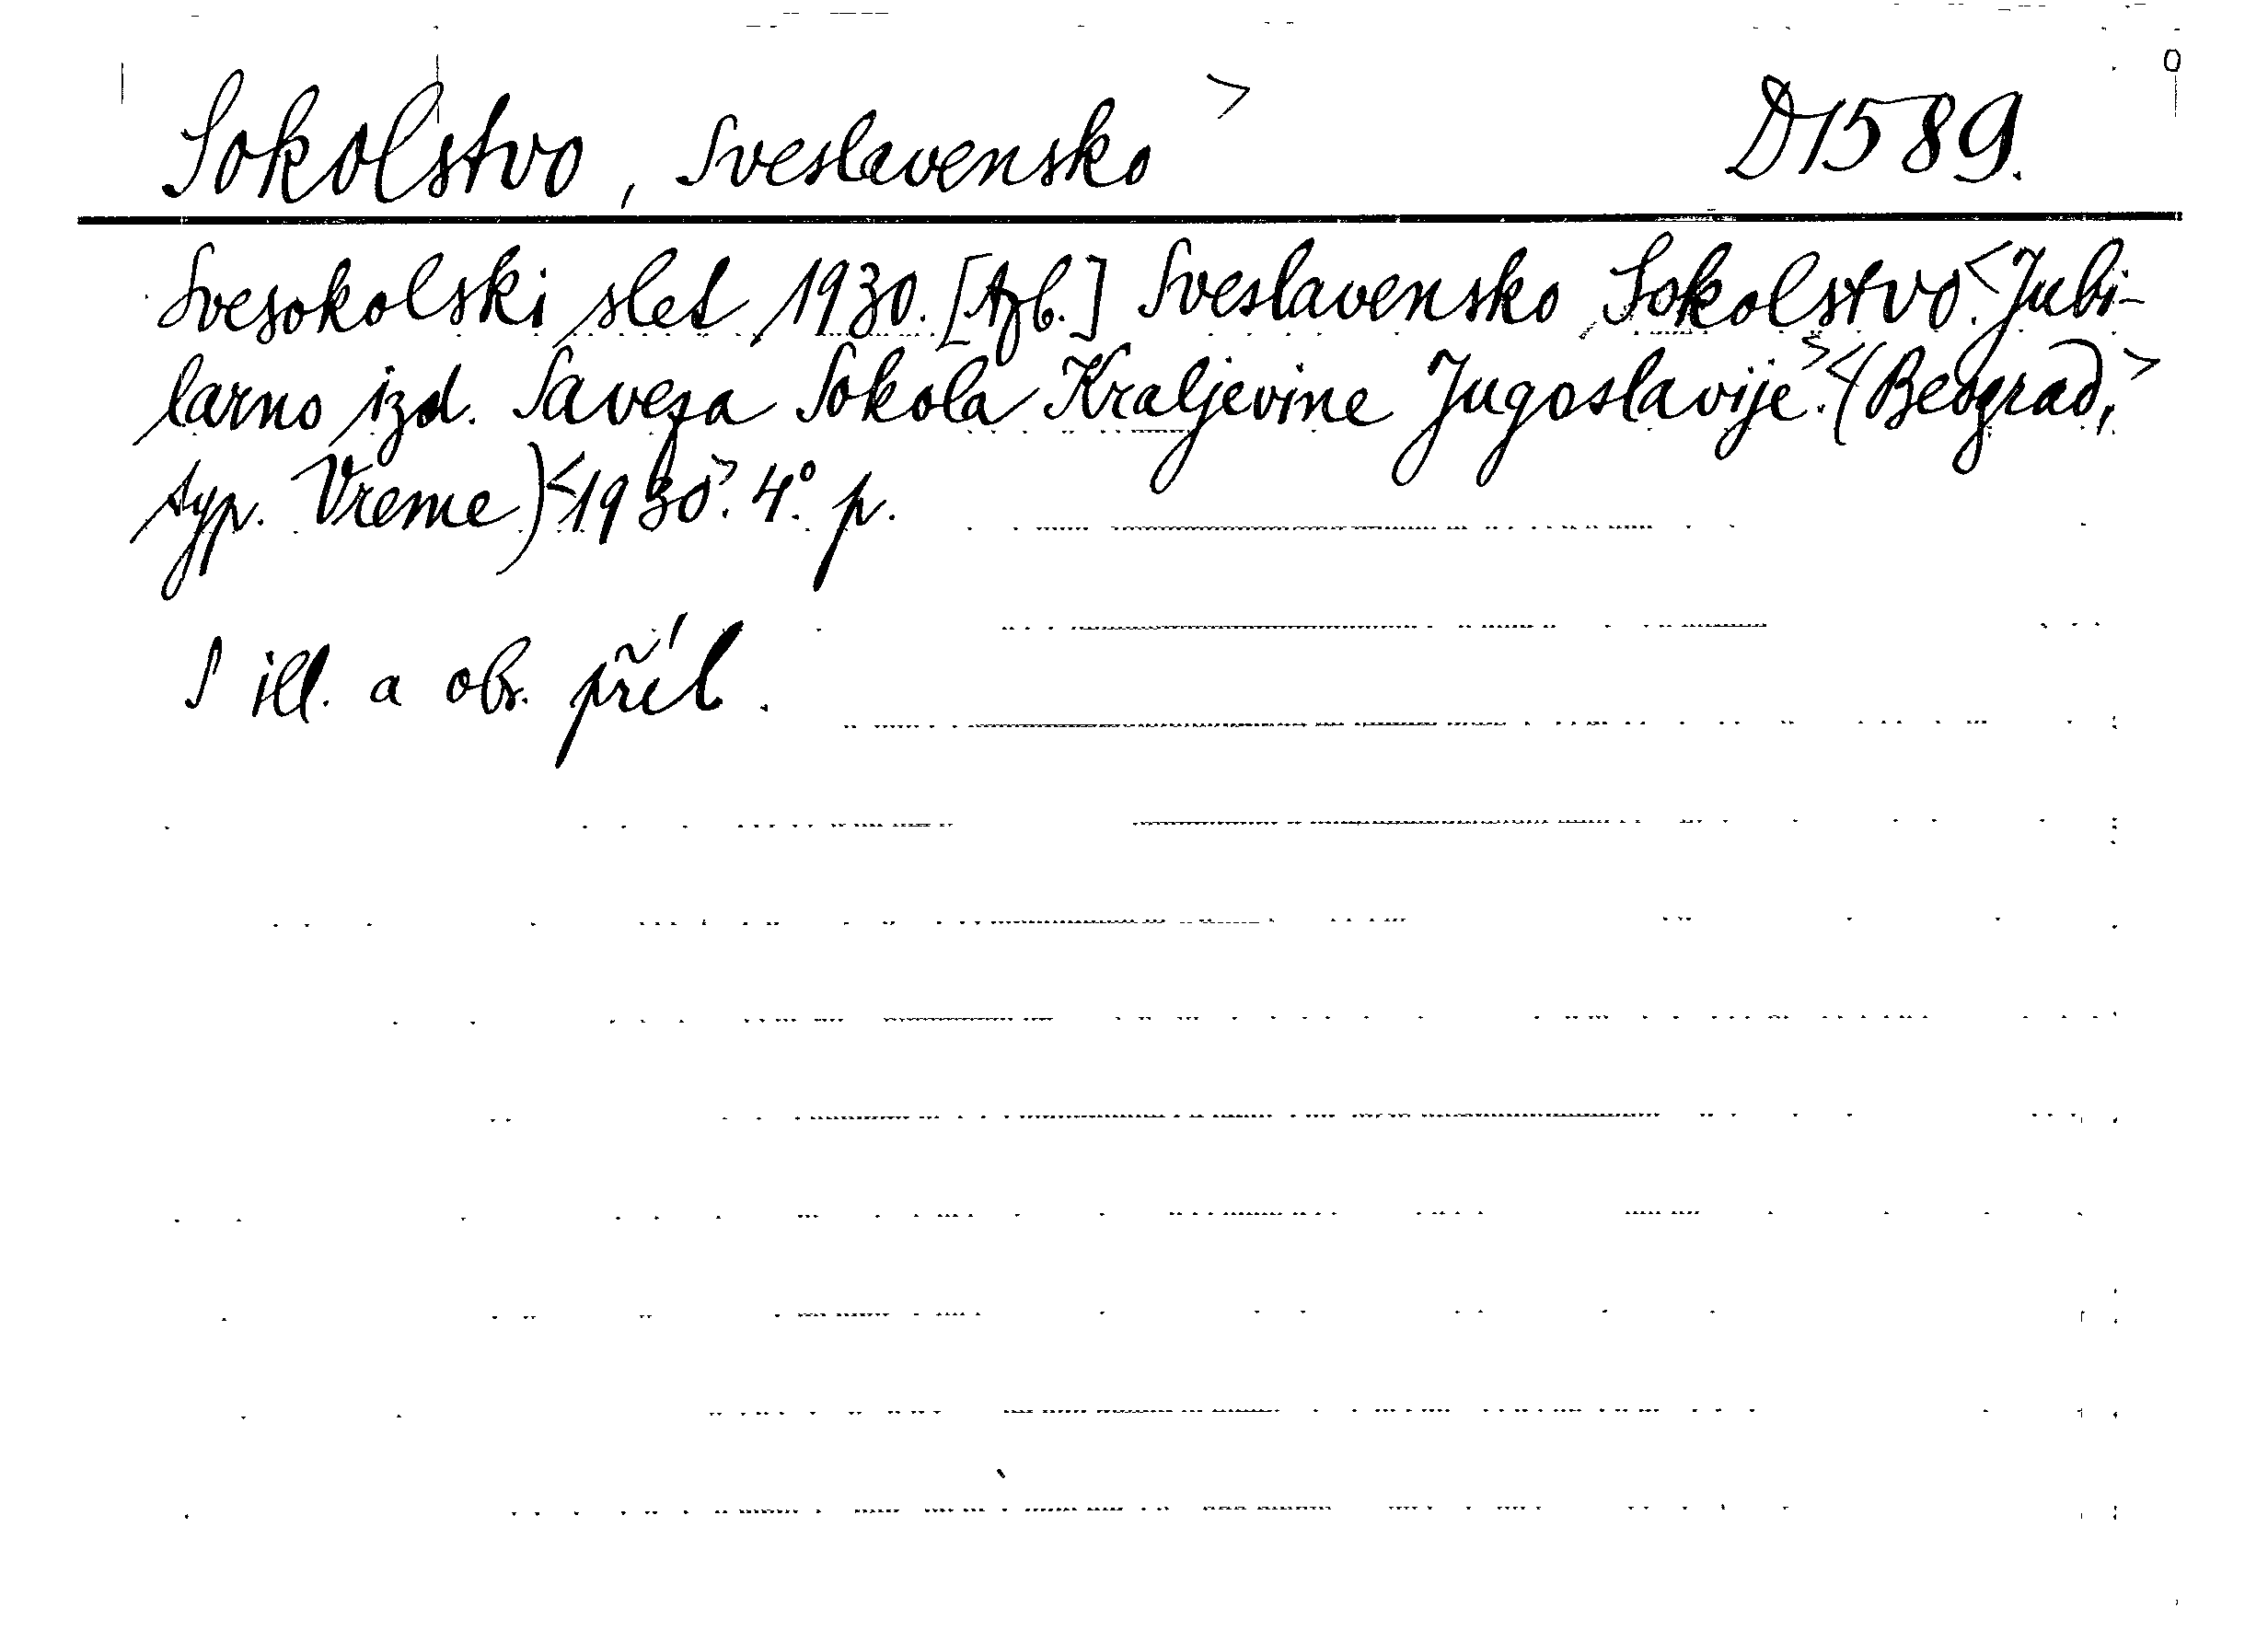 Sokolstvo, Sveslavensko > D 1589.
Svesokolski slet 1930. [Azb.] Sveslavensko Sokolstvo.<Jubi-
larno izd. Saveza Sokola Kraljevine Jugoslavije.><(Beograd,>
typ. Vreme)<1930>. 4° p.
S ill. a obr. příl.